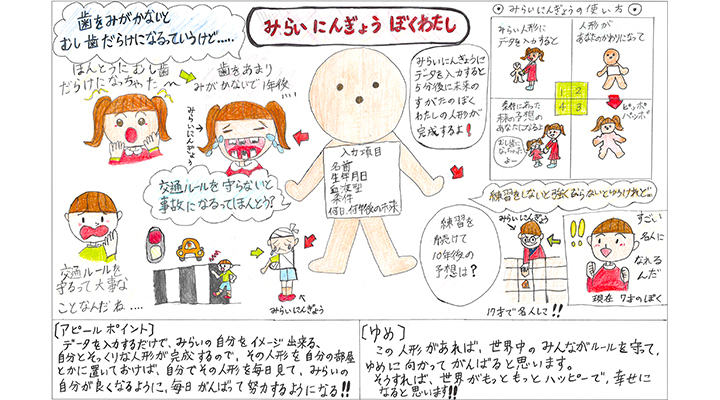 歯をみがかないと
むし歯だらけになるっていうけど‥‥‥
みらい にんぎょう ぼくわたし
みらいにんぎょうの使い方
みらい人形に
データを入力すると
人形が
あなたのかわりになって
1 2
4 3
条件にあった
未来の予想の
あなたになるよ
むし歯に
なっちゃった
よー
ピッポ
パッポ
ほんとうにむし歯
だらけになっちゃった〜
歯をあまり
みがかないで1年後
みらいにんぎょう
みらいにんぎょうに
データを入力すると
5分後に未来の
すがたのぼく
わたしの人形が
完成するよ!
入力項目
名前
生年月日
血液型
条件
何日、何年後の未来
交通ルールを守らないと
事故になるってほんとう?
交通ルールを
守るって大事な
ことなんだね‥‥
みらいにんぎょう
練習をしないと強くならないというけれど‥
練習を
続けて
10年後の
予想は?
みらいにんぎょう
17才で名人して!!
すごい
名人に
なれる
んだ
現在 7才のぼく
[アピールポイント]
データを入力するだけで、みらいの自分をイメージ出来る、
自分とそっくりな人形が完成するので、その人形を自分の部屋
とかに置いておけば、自分でその人形を毎日見て、みらいの
自分が良くなるように、毎日がんばって努力するようになる!!
[ゆめ]
この人形があれば、世界中のみんながルールを守って、
ゆめに向かってがんばると思います。
そうすれば、世界がもっともっとハッピーで、幸せに
なると思います!!